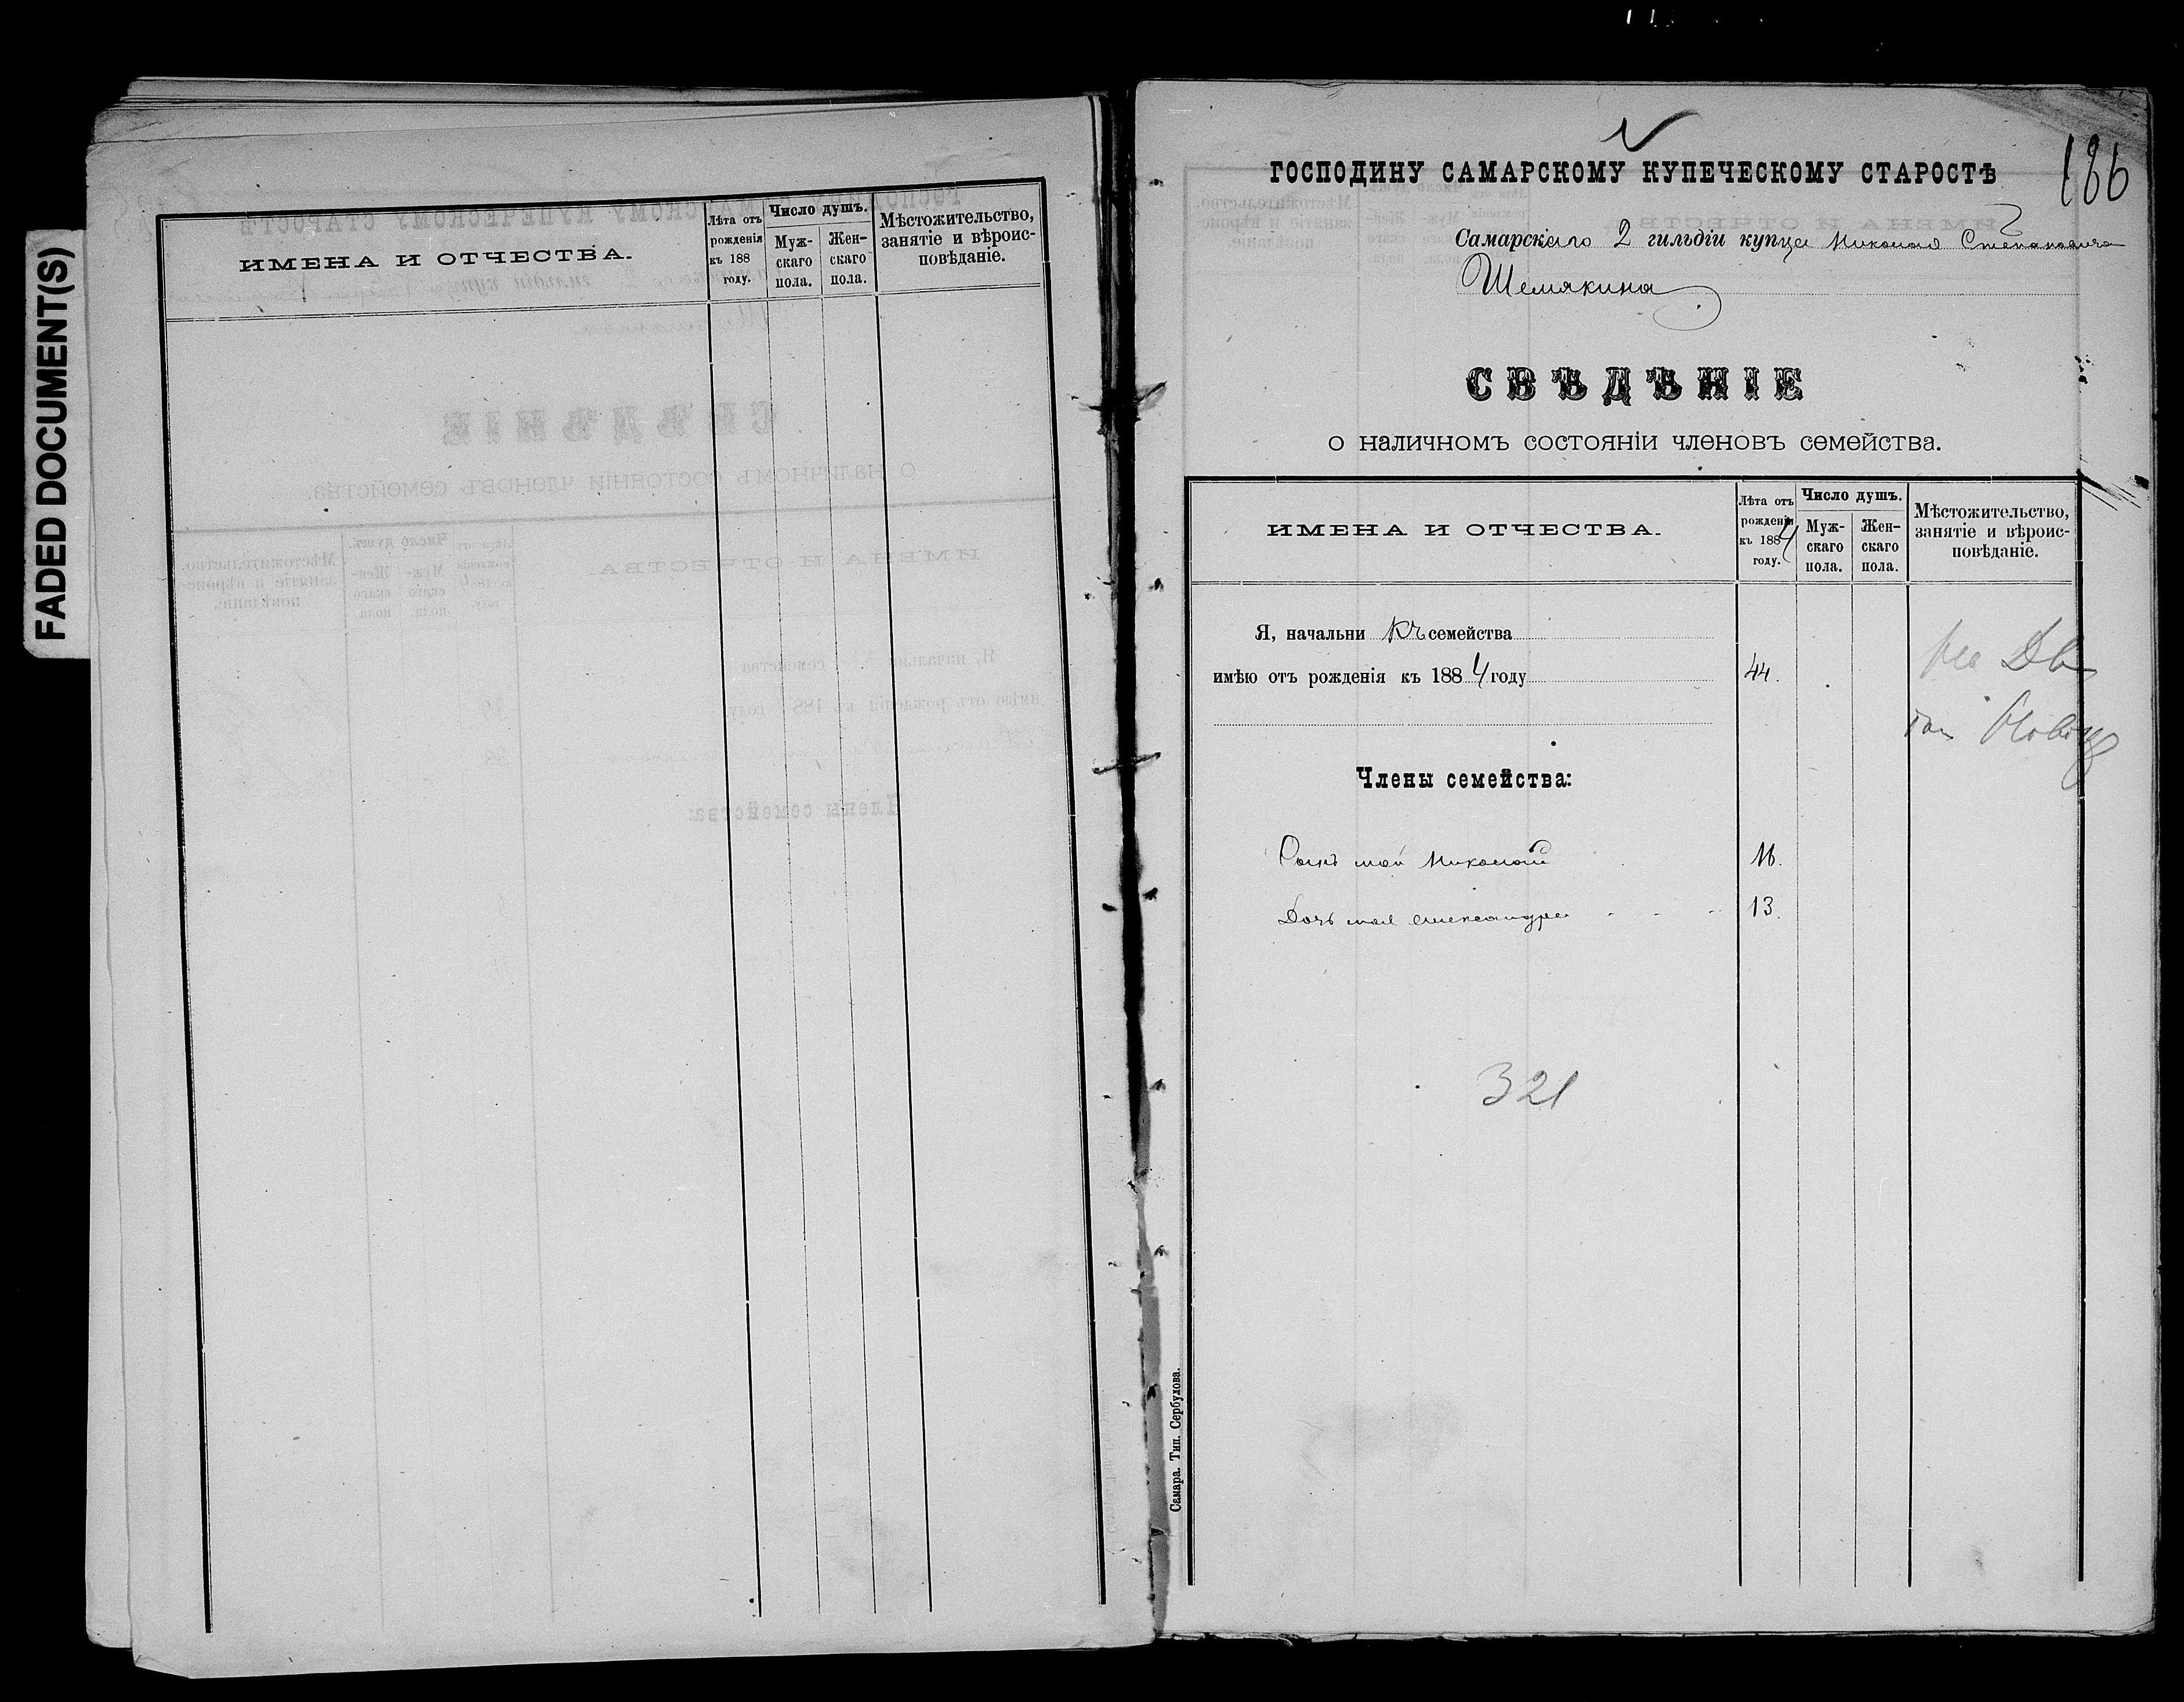 FADED DOCUMENT(S)
ИМЕНА И ОТЧЕСТВА.
Лѣта отъ рожденія къ 188 году.
Число душъ.
Муж-скаго пола.
Жен-скаго пола.
Мѣстожительство, занятіе и вѣроис-повѣданіе.
186
ГОСПОДИНУ САМАРСКОМУ КУПЕЧЕСКОМУ СТАРОСТѢ
Самарскаго 2 гильдіи купца Николая Степановича
Шемякина
СВѢДѢНІЕ
о наличномъ состояніи членовъ семейства.
ИМЕНА И ОТЧЕСТВА.
Лѣта отъ рожденія къ 1884 году.
Число душъ.
Муж-скаго пола.
Жен-скаго пола.
Мѣстожительство, занятіе и вѣроис-повѣданіе.
Я, начальникъ семейства
имѣю отъ рожденія къ 1884 году 44.
Члены семейства:
Сынъ мой Николай 16.
Дочь моя Александра 13.
321
Самара. Тип. Сербулова.